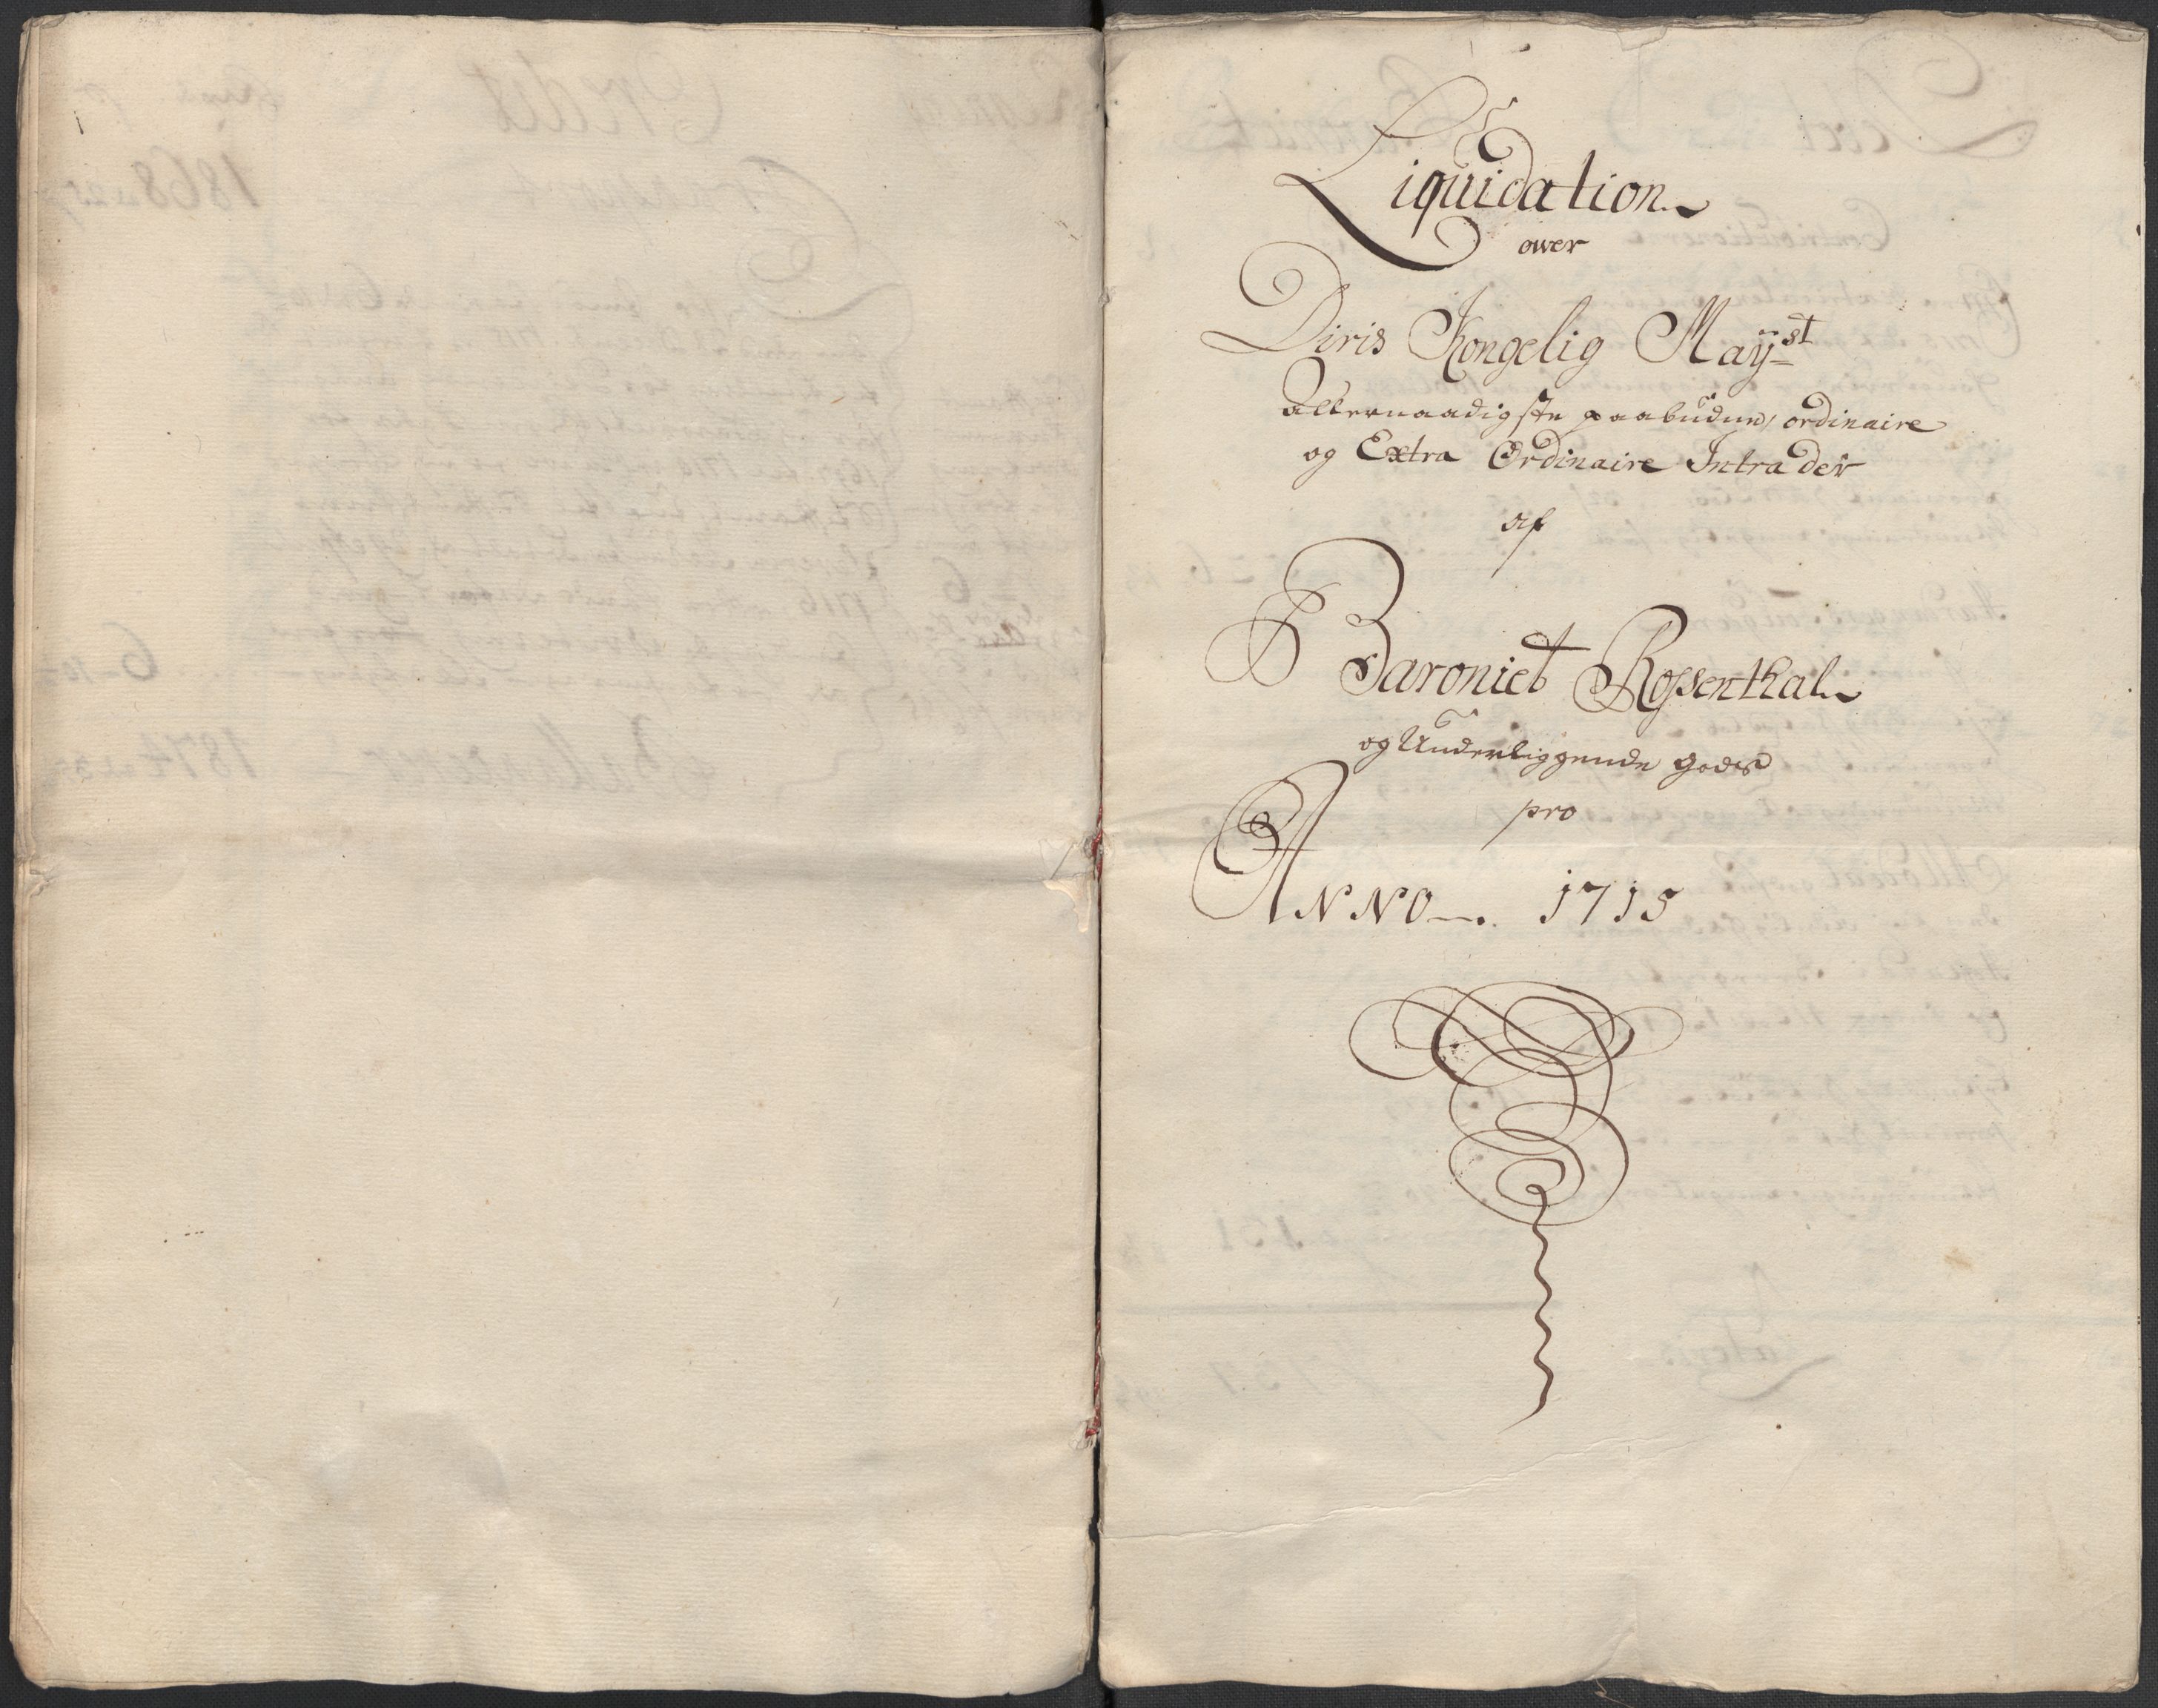 Liquidation
over
Diris Kongelig Maÿst
Allernaadigste paabudne ordinaire
og Extra Ordinaire Intrader
Af
Baroniet Rossenthal
og Underliggende Gods
pro
ANNO 1715